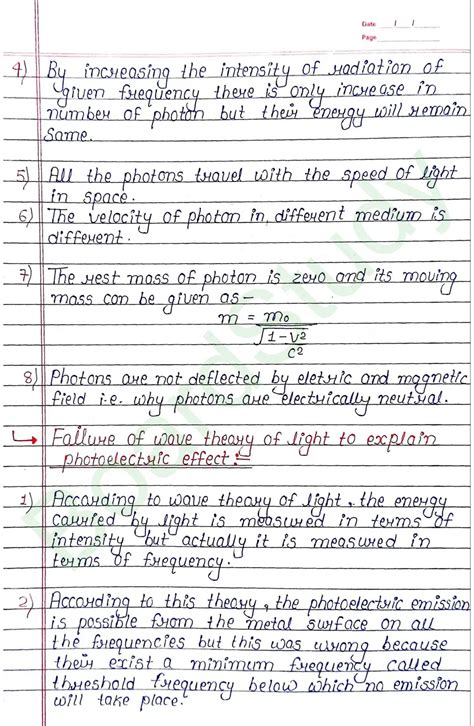 Date / /
Page
4) By increasing the intensity of radiation of
given frequency there is only increase in
number of photon but their energy will remain
same.
5) All the photons travel with the speed of light
in space.
6) The velocity of photon in different medium is
different.
7) The rest mass of photon is zero and its moving
mass can be given as -
m = m₀
√1-V²
C²
8) Photons are not deflected by eletric and magnetic
field i.e. why photons are electrically neutral.
↳ Failure of wave theory of light to explain
photoelectric effect :=
1) According to wave theory of light, the energy
carried by light is measured in terms of
intensity but actually it is measured in
terms of frequency.
2) According to this theory, the photoelectric emission
is possible from the metal surface on all
the frequencies but this was wrong because
their exist a minimum frequency called
threshold frequency below which no emission
will take place.
BoardStudy